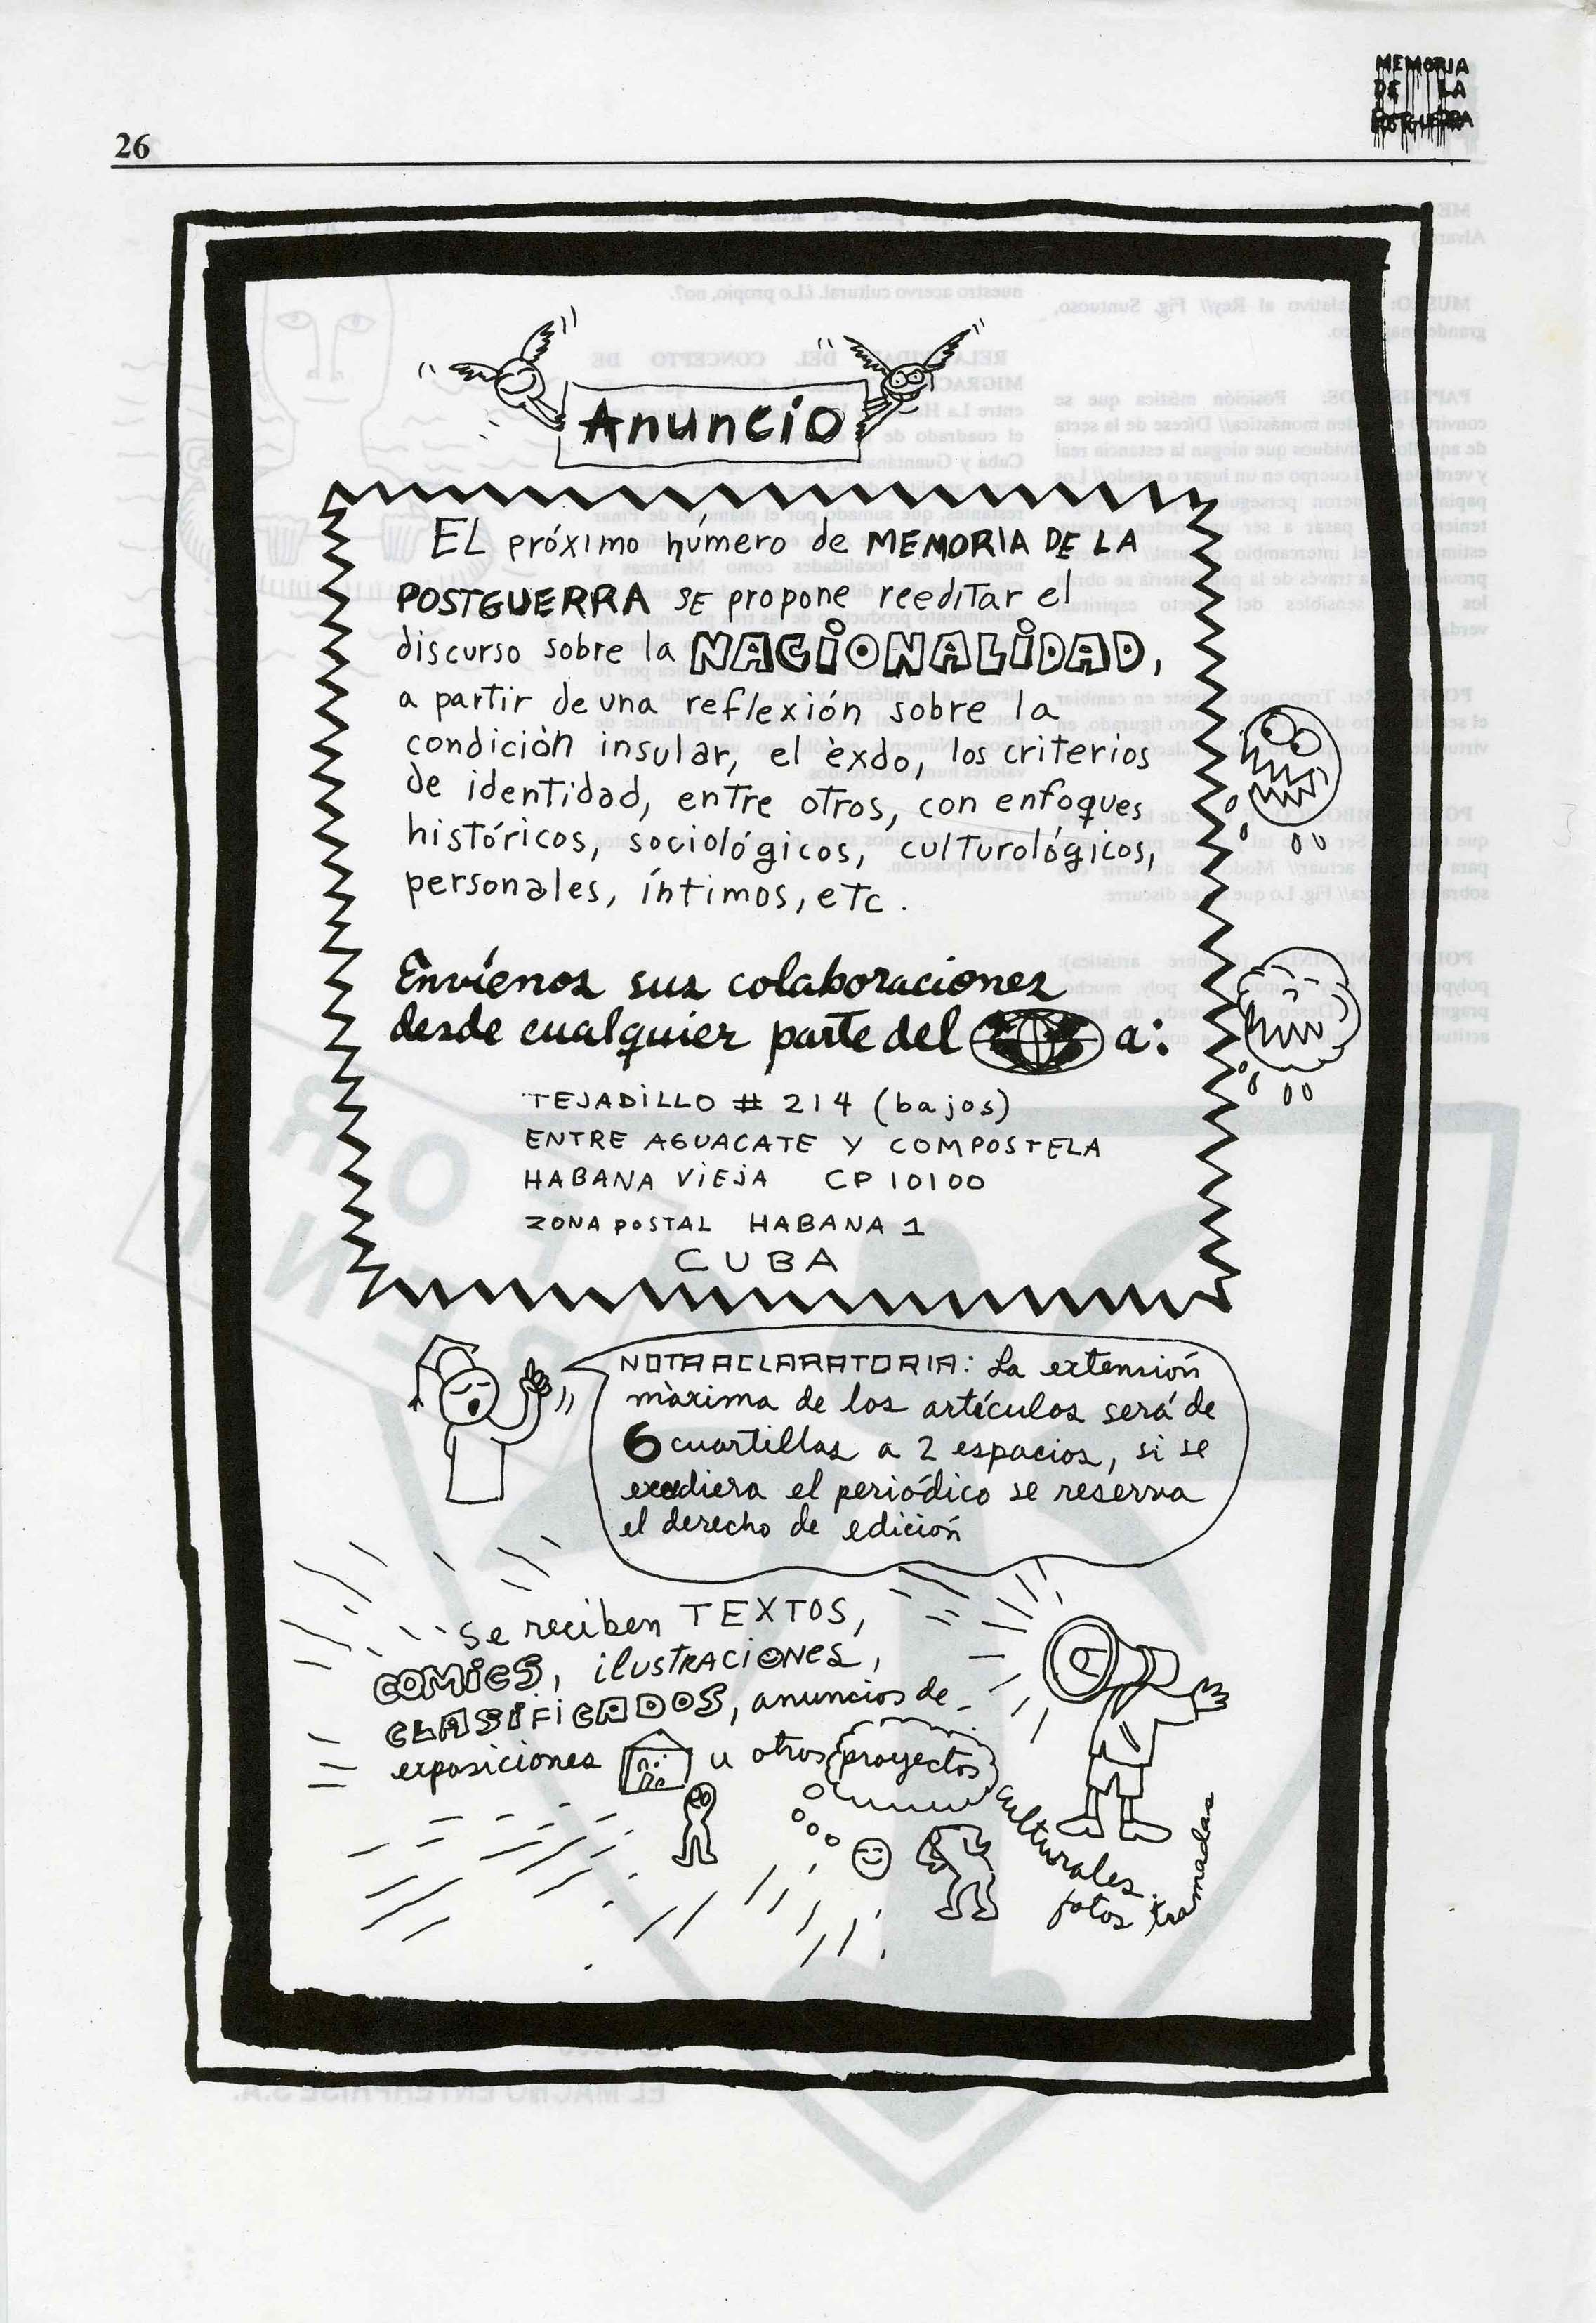 26
MEMORIA
DE LA
POSTGUERRA
Anuncio
EL próximo número de MEMORIA DE LA
POSTGUERRA SE propone reeditar el
discurso sobre la NACIONALIDAD,
a partir de una reflexión sobre la
condición insular, el èxdo, los criterios
de identidad, entre otros, con enfoques
históricos, sociológicos, culturológicos,
personales, íntimos, etc.
Envíenos sus colaboraciones
desde cualquier parte del a:
TEJADiLLO # 214 (bajos)
ENTRE AGUACATE Y COMPOSTELA
HABANA ViEJA CP 10100
ZONA POSTAL HABANA 1
CUBA
NOTA ACLARATORIA: La extensión
màxima de los artículos será de
6 cuartillas a 2 espacios, si se
excediera el periódico se reserva
el derecho de edición
Se reciben TEXTOS,
COMiCS, iLUSTRACiONES,
CLASiFiCADOS, anuncios de
exposiciones u otros proyectos
culturales.
fotos tramadas
EL MACHO ENTERPRISE S.A.